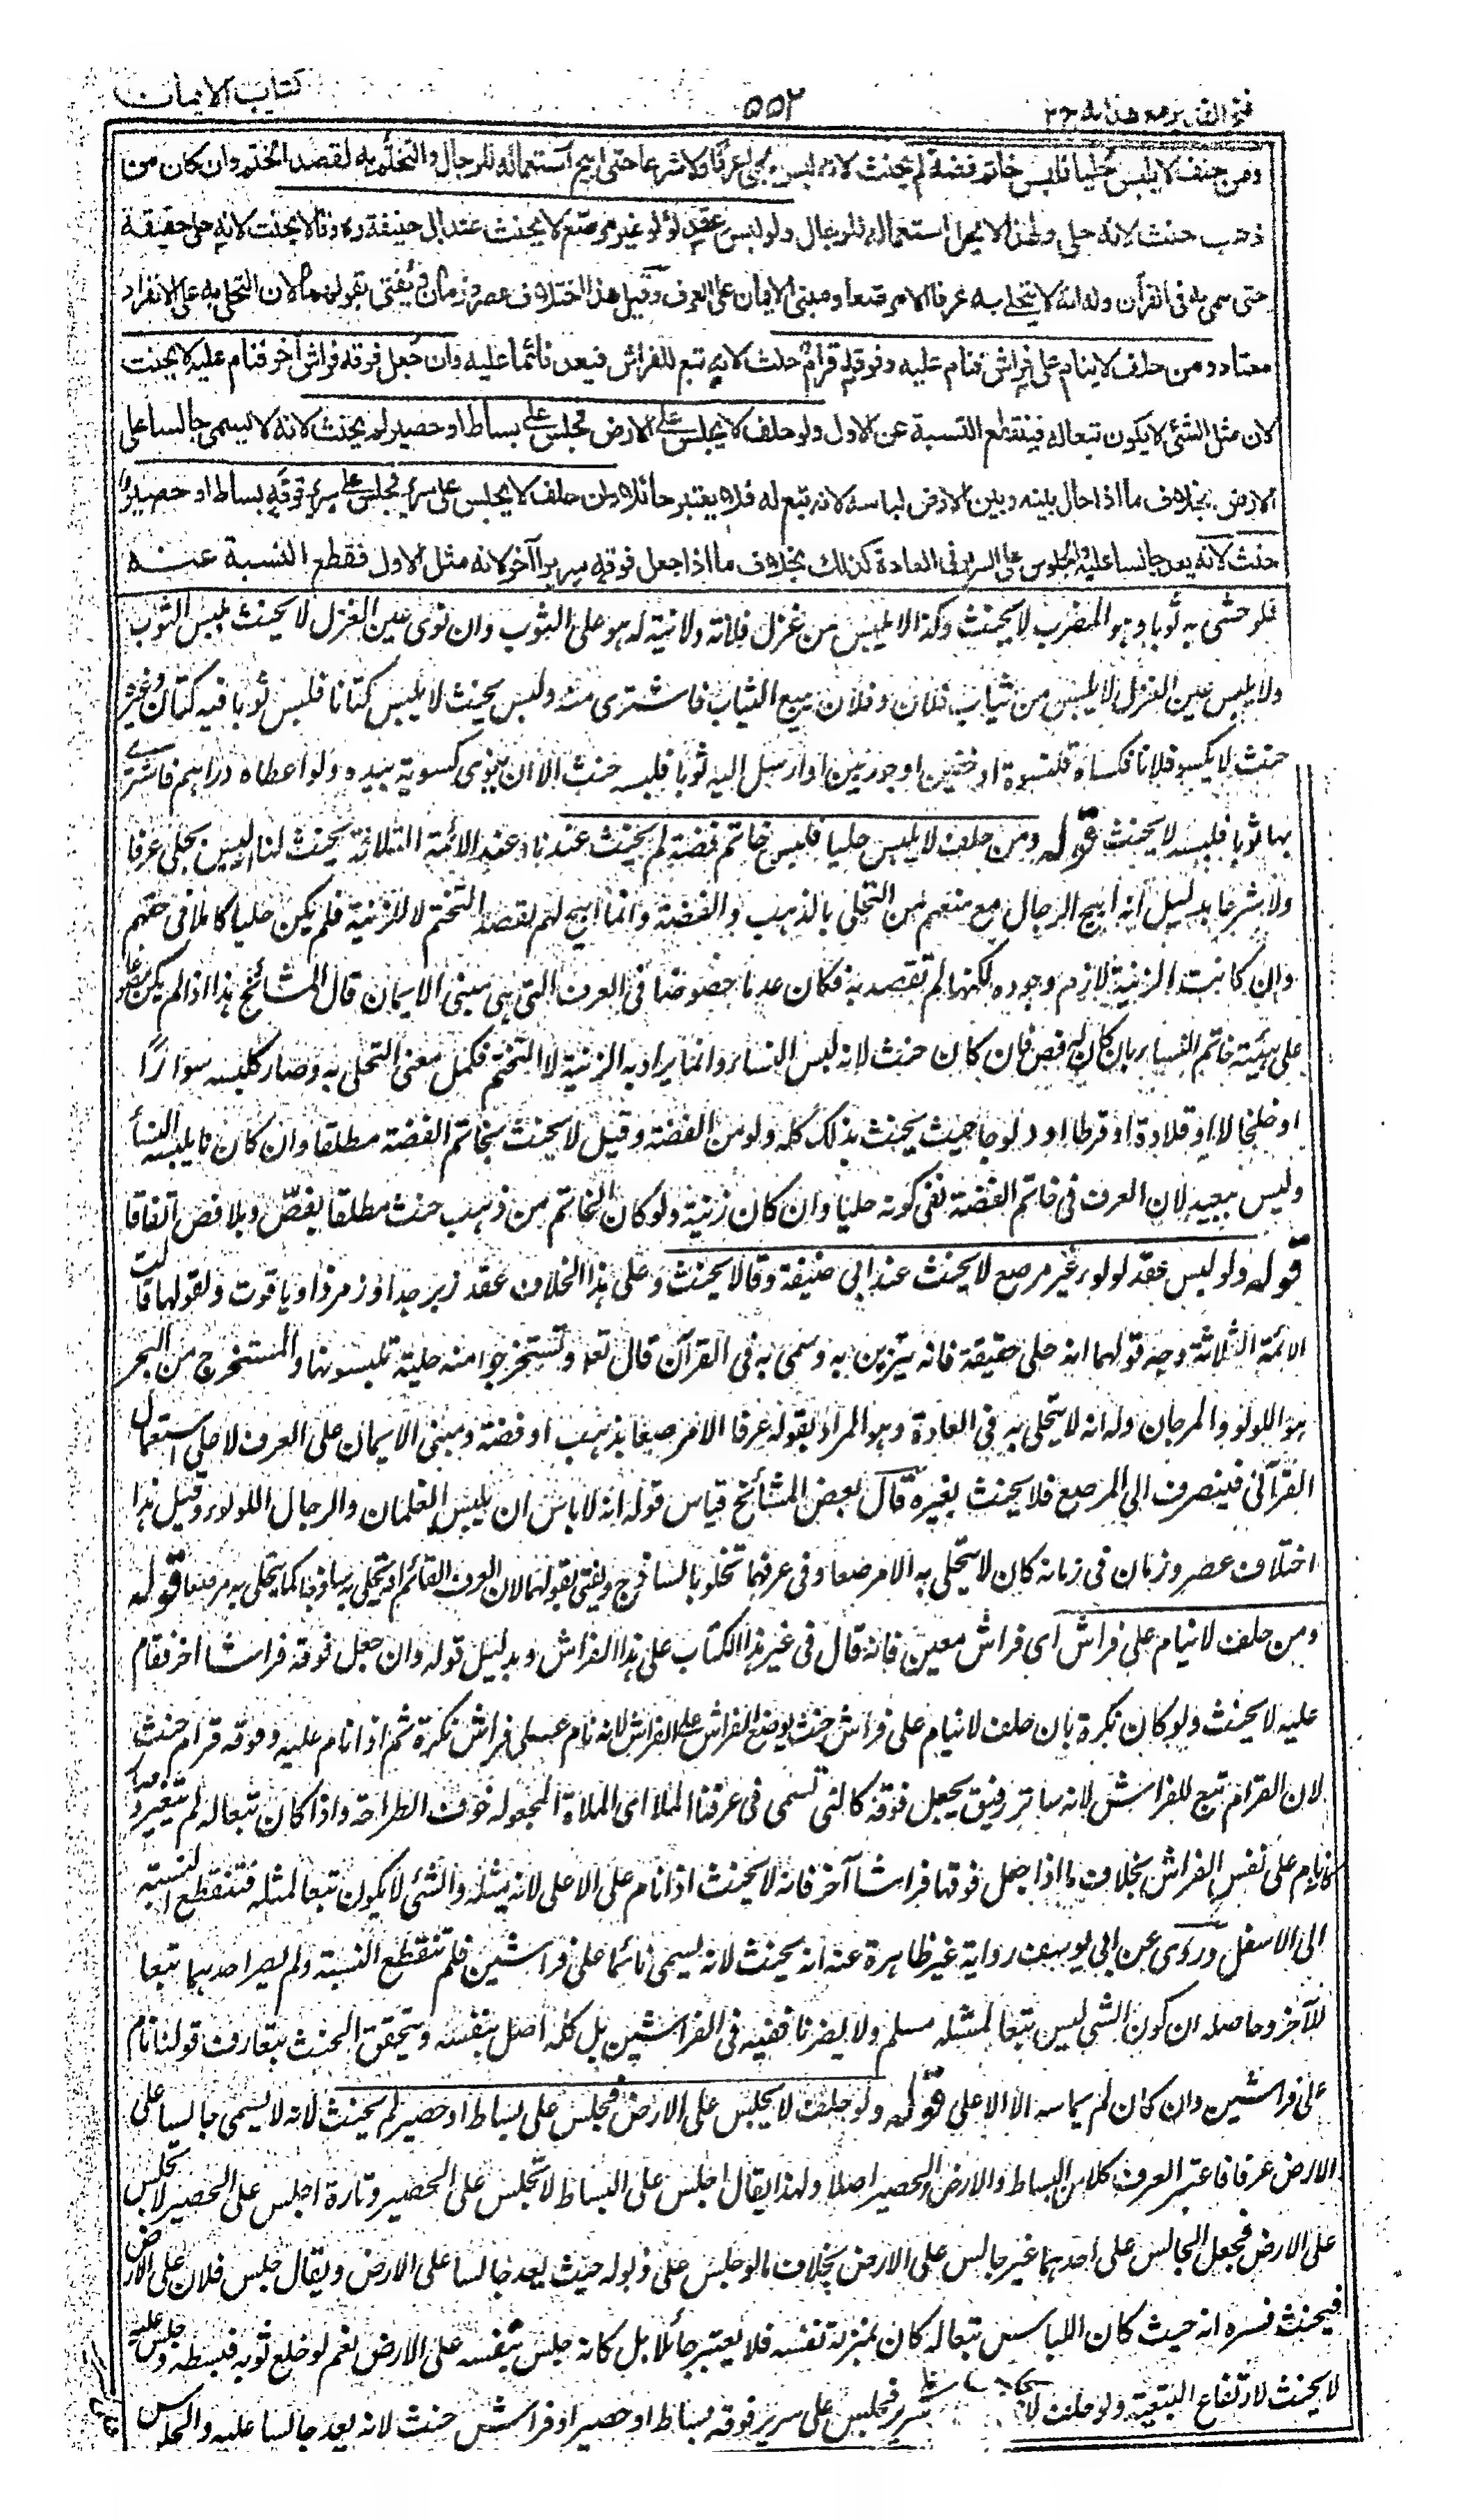 فتح القدير مع هدايه ج٢ ٥٥٢ كتاب الايمان
ومن حلف لا يلبس حليا فلبس خاتم فضة لم يحنث لانه ليس بحلي عرفا ولا شرعا حتى ابيح استعماله للرجال والتختم به لقصد الختم وان كان من
ذهب حنث لانه حلي ولهذا لا يحل استعماله للرجال ولو لبس عقد لؤلؤ غير مرصع لا يحنث عند ابي حنيفة ره وقالا يحنث لانه حلي حقيقة
حتى سمي به في القرآن وله انه لا يتحلى به عرفا الا مرصعا ومبنى الايمان على العرف وقيل هذا اختلاف عصر وزمان ويفتى بقولهما لان التحلي به على الانفراد
معتاد ومن حلف لا ينام على فراش فنام عليه وفوقه قرام حنث لانه تبع للفراش فيعد نائما عليه وان جعل فوقه فراش آخر فنام عليه لا يحنث
لان مثل الشئ لا يكون تبعا له فينقطع النسبة عن الاول ولو حلف لا يجلس على الارض فجلس على بساط او حصير لم يحنث لانه لا يسمى جالسا على
الارض بخلاف ما اذا حال بينه وبين الارض لباسه لانه تبع له فلا يعتبر حائلا ومن حلف لا يجلس على سرير فجلس على سرير فوقه بساط او حصير
حنث لانه يعد جالسا عليه والجلوس على السرير في العادة كذلك بخلاف ما اذا جعل فوقه سريرا آخر لانه مثل الاول فقطع النسبة عنه
فلو حشى به ثوبا وهو المضرب لا يحنث وكذا لا يلبس من غزل فلانة ولا نية له هو على الثوب وان نوى عين الغزل لا يحنث بلبس الثوب
ولا يلبس عين الغزل لا يلبس من ثياب فلان وفلان يبيع الثياب فاشترى منه ولبس يحنث لا يلبس كتانا فلبس ثوبا فيه كتان وغيره
حنث لا يكسو فلانا فكساه قلنسوة او خفين او جوربين او ارسل اليه ثوبا فلبسه حنث الا ان ينوى كسوته بيده ولو اعطاه دراهم فاشترى
بها ثوبا فلبسه لا يحنث قوله ومن حلف لا يلبس حليا فلبس خاتم فضة لم يحنث عندنا وعند الائمة الثلاثة يحنث لنا انه ليس بحلي عرفا
ولا شرعا بدليل انه ابيح للرجال مع منعهم من التحلي بالذهب والفضة وانما ابيح لهم لقصد التختم لا للزينة فلم يكن حليا كاملا في حقهم
وان كانت الزينة لازم وجوده لكنها لم تقصد به فكان عدما خصوصا في العرف التي هي مبنى الايمان قال المشائخ هذا اذا لم يكن مصوغا
على هيئة خاتم النساء بان كان له فص فان كان حنث لانه لبس النساء وانما يراد به الزينة لا التختم فكمل معنى التحلي به وصار كلبسه سوارا
او خلخالا او قلادة او قرطا او دملوجا حيث يحنث بذلك كله ولو من الفضة وقيل لا يحنث بخاتم الفضة مطلقا وان كان مما يلبسه النساء
وليس ببعيد لان العرف في خاتم الفضة نفى كونه حليا وان كان زينة ولو كان الخاتم من ذهب حنث مطلقا بفص وبلا فص اتفاقا
قوله ولو لبس عقد لولوء غير مرصع لا يحنث عند ابي حنيفة وقالا يحنث وعلى هذا الخلاف عقد زبرجد او زمرد او ياقوت ولقولهما قالت
الائمة الثلاثة وجه قولهما انه حلي حقيقة فانه يتزين به وسمى به في القرآن قال تعا وتستخرجوا منه حلية تلبسونها والمستخرج من البحر
هو اللولو والمرجان وله انه لا يتحلى به في العادة وهو المراد بقوله عرفا الا مرصعا بذهب او فضة ومبنى الايمان على العرف لا على استعمال
القرآن فينصرف الى المرصع فلا يحنث بغيره قال بعض المشائخ قياس قوله انه لا باس ان يلبس الغلمان والرجال اللولوء وقيل هذا
اختلاف عصر وزمان في زمانه كان لا يتحلى به الا مرصعا وفي عرفهما تحلوا بالساذج ويفتى بقولهما لان العرف القائم انه يتحلى به ساذجا كما يتحلى به مرصعا قوله
ومن حلف لا ينام على فراش اى فراش معين فانه قال في غير هذا الكتاب على هذا الفراش وبدليل قوله وان جعل فوقه فراشا اخر فنام
عليه لا يحنث ولو كان نكرة بان حلف لا ينام على فراش حنث بوضع الفراش على الفراش لانه نام على فراش نكرة ثم اذا نام عليه وفوقه قرام حنث
لان القرام تبع للفراش لانه ساتر رقيق يجعل فوقه كالتي تسمى في عرفنا الملااى الملاة المجعولة فوق الطراحة واذا كان تبعا له لم تتغير
نام على نفس الفراش بخلاف ما اذا جعل فوقها فراشا آخر فانه لا يحنث اذا نام على الاعلى لانه مثله والشئ لا يكون تبعا لمثله فتنقطع النسبة
الى الاسفل وروى عن ابي يوسف رواية غير ظاهرة عنه انه يحنث لانه يسمى نائما على فراشين فلم تنقطع النسبة ولم يصر احدهما تبعا
للآخر وحاصله ان كون الشئ ليس تبعا لمثله مسلم ولا يضرنا نفيه في الفراشين بل كل اصل بنفسه ويتحقق الحنث بتعارف قولنا نام
على فراشين وان كان لم يماسه الا الاعلى قوله ولو حلف لا يجلس على الارض فجلس على بساط او حصير لم يحنث لانه لا يسمى جالسا على
الارض عرفا فاعتبر العرف كلا من البساط والارض والحصير اصلا ولهذا يقال اجلس على البساط لا تجلس على الحصير وتارة اجلس على الحصير لا تجلس
على الارض فجعل الجالس على احدهما غير جالس على الارض بخلاف ما لو جلس على ذيوله حيث يعد جالسا على الارض ويقال جلس فلان على الارض
فيحنث فسره انه حيث كان اللباس تبعا له كان بمنزلة نفسه فلا يعتبر حائلا بل كانه جلس بنفسه على الارض نعم لو خلع ثوبه فبسطه وجلس عليه
لا يحنث لارتفاع التبعية ولو حلف لا سرير فجلس على سرير فوقه بساط او حصير او فراش حنث لانه يعد جالسا عليه والجلوس